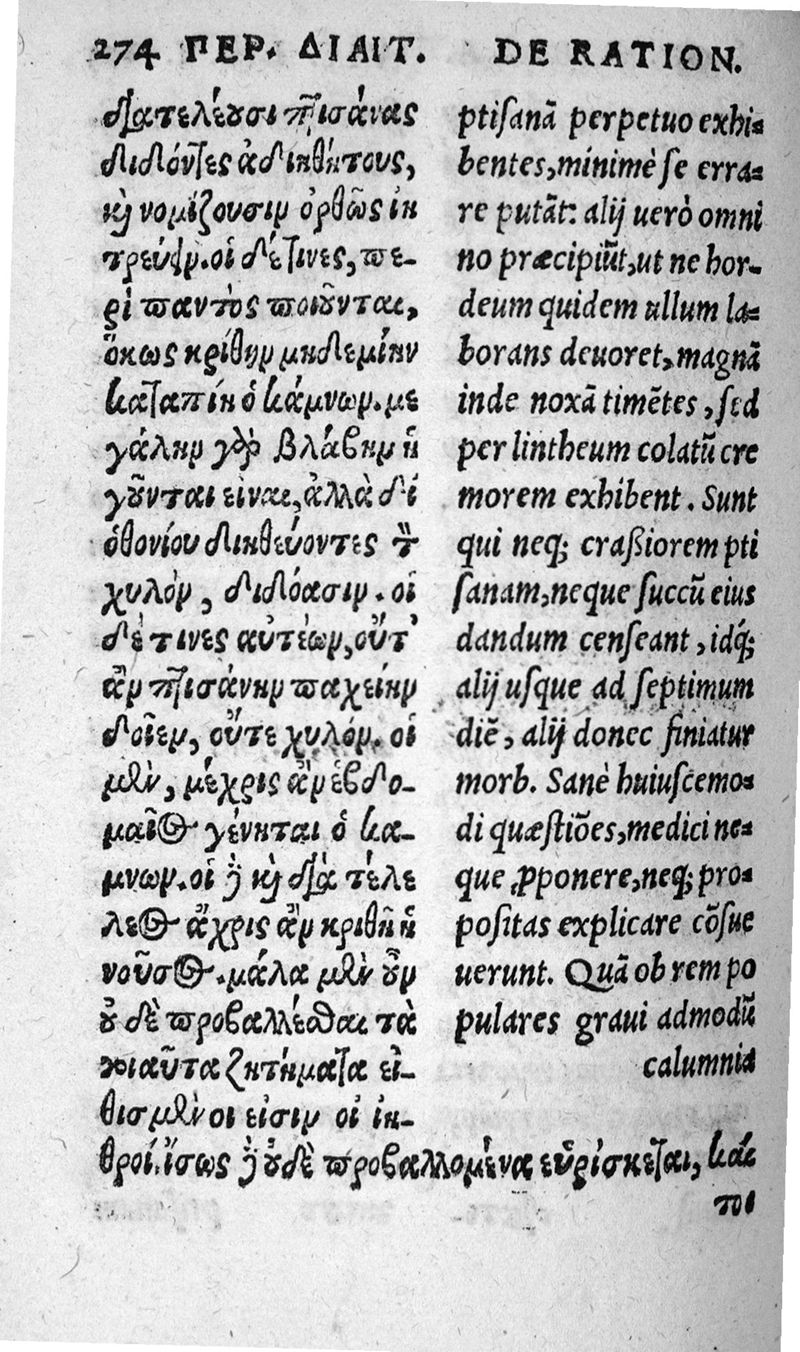 274 ΠΕΡ. ΔΙΑΙΤ.
διατελέουσι πτισάνας
διδόντες ἀδιηθήτους,
καὶ νομίζουσιν ὀρθῶς ἰη
τρεύειν. οἱ δέ τινες, πε-
ρὶ παντὸς ποιοῦνται,
ὅκως κριθὴν μηδεμίην
καταπίη ὁ κάμνων. με
γάλην γὰρ βλάβην ἡ
γοῦνται εἶναι, ἀλλὰ δι
ὀθονίου διηθεύοντες τὸν
χυλὸν, διδόασιν. οἱ
δέ τινες αὐτέων, οὔτ'
ἂν πτισάνην παχείην
δοῖεν, οὔτε χυλόν. οἱ
μὲν, μέχρις ἂν ἑβδο-
μαῖος γένηται ὁ κά-
μνων. οἱ δὲ καὶ διὰ τέλε
λεος ἄχρις ἂν κριθῇ ἡ
νοῦσος. μάλα μὲν οὖν
οὐδὲ προβαλλέσθαι τὰ
τοιαῦτα ζητήματα εἰ-
θισμένοι εἰσιν οἱ ἰη-
θροί. ἴσως δὲ οὐδὲ προβαλλομένα εὑρίσκεται, καί
τοι
DE RATION.
ptisanā perpetuo exhi-
bentes, minimè se erra-
re putāt: alij uerò omni
no præcipiūt, ut ne hor-
deum quidem ullum la-
borans deuoret, magnā
inde noxā timētes, sed
per lintheum colatū cre
morem exhibent. Sunt
qui neq; craßiorem pti
sanam, neque succū eius
dandum censeant, idq́;
alij usque ad septimum
diē, alij donec finiatur
morb. Sanè huiuscemo-
di quæstiōes, medici ne-
que ꝓponere, neq; pro-
positas explicare cōsue
uerunt. Quā ob rem po
pulares graui admodū
calumnia